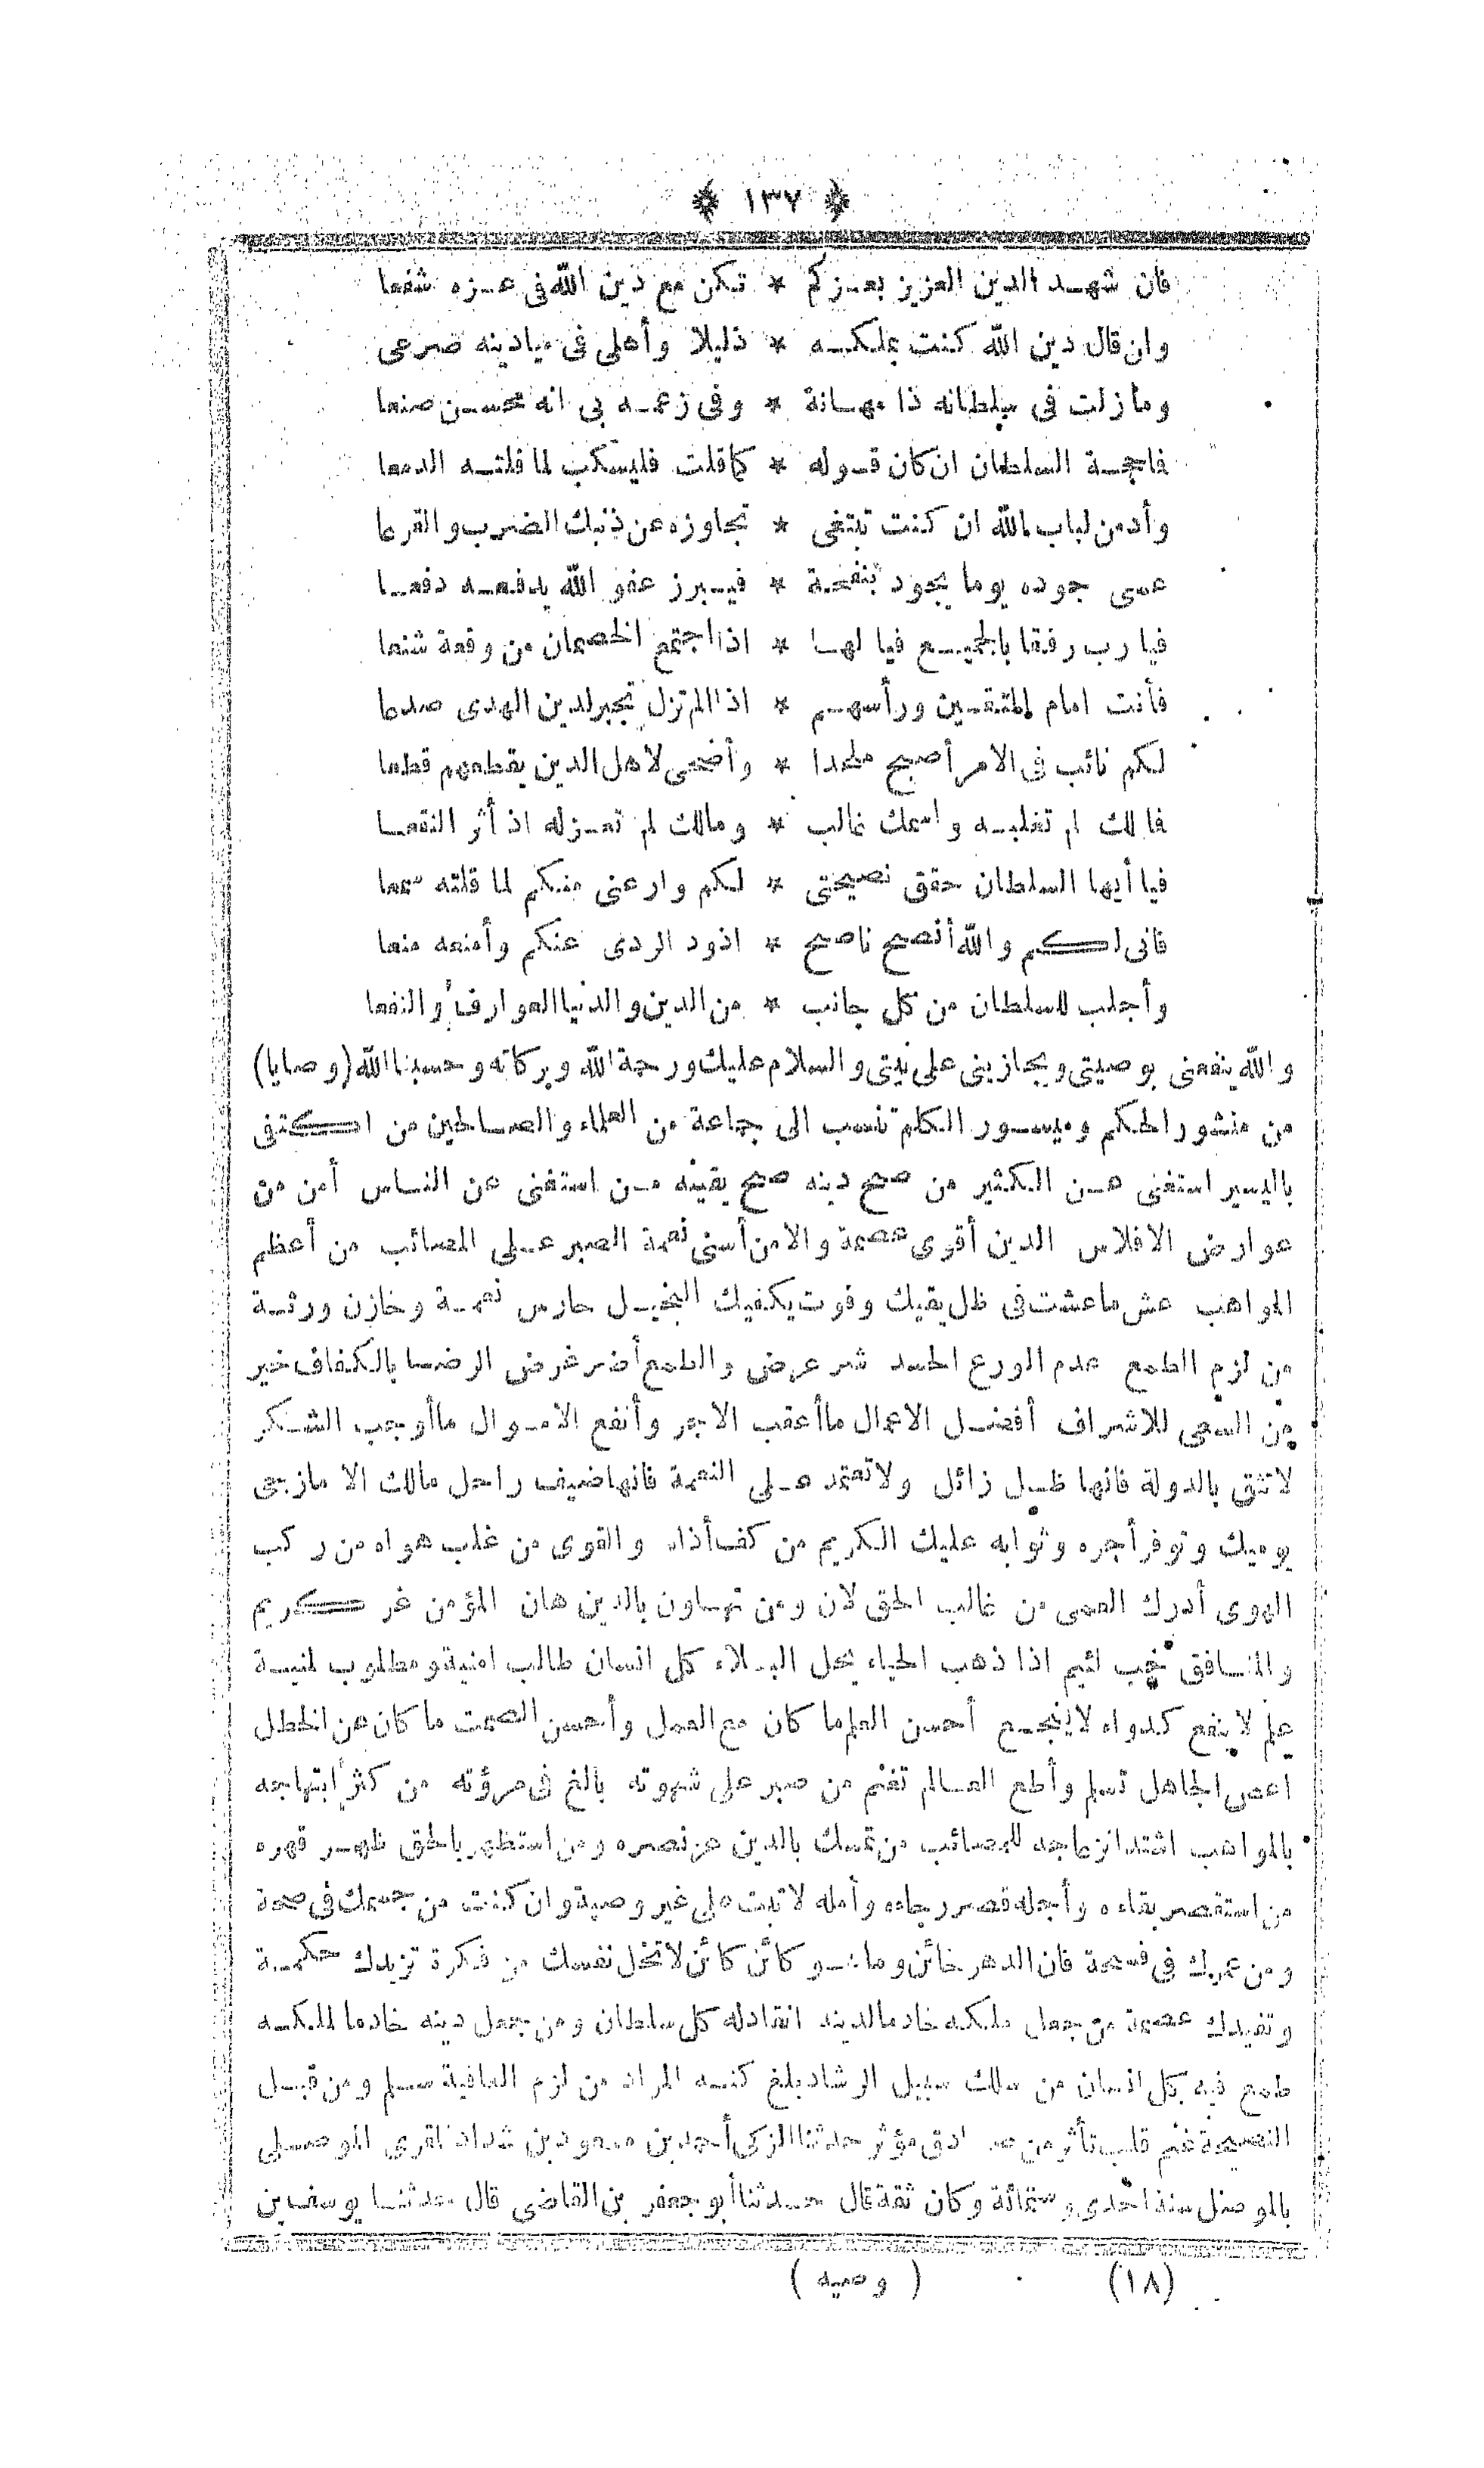 ﴿ ١٣٧ ﴾
فان شهد الدين العزيز بعزكم * تكن مع دين الله فى عزه شفعا
وان قال دين الله كنت بملكه * ذليلا وأهلى فى ميادينه صرعى
وما زلت فى سلطانه ذا مهانة * وفى زعمه بى انه محسن صنعا
فاحجة السلطان ان كان قوله * كما قلت فليسكب لما قلته الدمعا
وأدمن لباب الله ان كنت تبتغى * تجاوزه عن ذنبك الضرب والقرعا
عسى جوده يوما يجود بنفحة * فيبرز عفو الله يدفعه دفعا
فيا رب رفقا بالجميع فيا لها * اذا اجتمع الخصمان من وقعة شنعا
فأنت امام المتقين ورأسهم * اذا لم تزل تجبر لدين الهدى صدعا
لكم نائب فى الامر أصبح ملحدا * وأضحى لاهل الدين يقطعهم قطعا
فمالك لم تغلبه واسمك غالب * ومالك لم تعزله اذ أثر النقعا
فيا أيها السلطان حقق نصيحتى * لكم وارعنى منكم لما قلته سمعا
فانى لكم والله أنصح ناصح * اذود الردى عنكم وأمنعه منعا
وأجلب للسلطان من كل جانب * من الدين والدنيا العوارف والنفعا
والله ينفعنى بوصيتى ويجازينى على نيتى والسلام عليك ورحمة الله وبركاته وحسبنا الله (وصايا)
من منثور الحكم وميسور الكلم تنسب الى جماعة من العلماء والصالحين من اكتفى
باليسير استغنى عن الكثير من صح دينه صح يقينه من استغنى عن الناس أمن من
عوارض الافلاس الدين أقوى عصمة والامن أسنى نعمة الصبر على المصائب من أعظم
المواهب عش ما عشت فى ظل يقيك وقوت يكفيك البخيل حارس نعمة وخازن ورثة
من لزم الطمع عدم الورع الحسد شر عرض والطمع أضر غرض الرضا بالكفاف خير
من السعى للاشراف أفضل الاعمال ما أعقب الاجر وأنفع الاموال ما أوجب الشكر
لا تثق بالدولة فانها ظل زائل ولا تعتمد على النعمة فانها ضيف راحل مالك الا ما زجى
يوميك وتوفر أجره وثوابه عليك الكريم من كف أذاه والقوى من غلب هواه من ركب
الهوى أدرك العمى من غالب الحق لان ومن تهاون بالدين هان المؤمن غر كريم
والمنافق خب لئيم اذا ذهب الحياء يحل البلاء كل انسان طالب امنية ومطلوب لمنية
علم لا ينفع كدواء لا ينجع أحسن العلم ما كان مع العمل وأحسن الصمت ما كان عن الخطل
اعص الجاهل تسلم وأطع العالم تغنم من صبر على شهوته بالغ فى مروءته من كثر ابتهاجه
بالمواهب اشتد انزعاجه للمصائب من تمسك بالدين عز نصره ومن استظهر بالحق ظهر قهره
من استقصر بقاءه وأجله قصر رجاءه وأمله لا تبت على غير وصية وان كنت من جسمك فى صحة
ومن عمرك فى فسحة فان الدهر خائن وما هو كائن كائن لا تخل نفسك من فكرة تزيدك حكمة
وتفيدك عصمة من جعل ملكه خادما لدينه انقاد له كل سلطان ومن جعل دينه خادما لملكه
طمع فيه كل انسان من سلك سبيل الرشاد بلغ كنه المراد من لزم العافية سلم ومن قبل
النصيحة غنم قلب تأثر من صادق مؤثر حدثنا الزكى أحمد بن مسعود بن شداد المقرى الموصلى
بالموصل سنة احدى وستمائة وكان ثقة قال حدثنا أبو جعفر بن القاضى قال حدثنا يوسف بن
(١٨) ( وصيه )